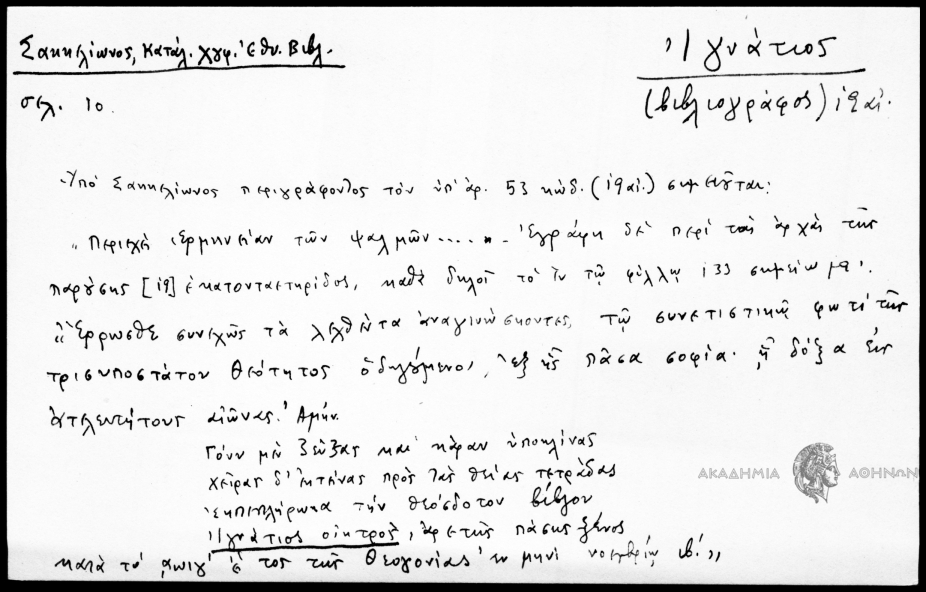 Σακκελίωνος, Κατάλ. χγφ. Ἐθν. Βιβλ.
Ἰγνάτιος
σελ. 10.
(βιβλιογράφος) ιθ αἰ.
Ὑπό Σακκελίωνος περιγράφοντος τόν ὑπ' ἀρ. 53 κώδ. (ιθ αἰ.) σημειοῦται:
"Περιέχει ἑρμηνείαν τῶν ψαλμῶν..... Ἐγράφη δέ περί τάς ἀρχάς τῆς
παρούσης [ιθ] ἑκατονταετηρίδος, καθά δηλοῖ τό ἐν τῷ φύλλῳ 133 σημείωμα.
"Ἔρρωσθε συνεχῶς τά λεχθέντα ἀναγινώσκοντες, τῷ συνετιστικῷ φωτί τῆς
τρισυποστάτου θεότητος ὁδηγούμενοι, ἐξ ἧς πᾶσα σοφία· ᾗ δόξα εἰς
ἀτελευτήτους αἰῶνας. Ἀμήν.
Γόνυ μέν ζεύξας καί κάραν ὑποκλίνας
χεῖρας δ' ἐκτείνας πρός τάς θείας τετράδας
ἐκπεπλήρωκα τήν θεόσδοτον βίβλον
Ἰγνάτιος οἰκτρός, ἀρετῆς πάσης ξένος
ΑΚΑΔΗΜΙΑ ΑΘΗΝΩΝ
κατά τό ͵αωιγ' ἔτος τῆς Θεογονίας ἐν μηνί νοεμβρίῳ ιβ'."